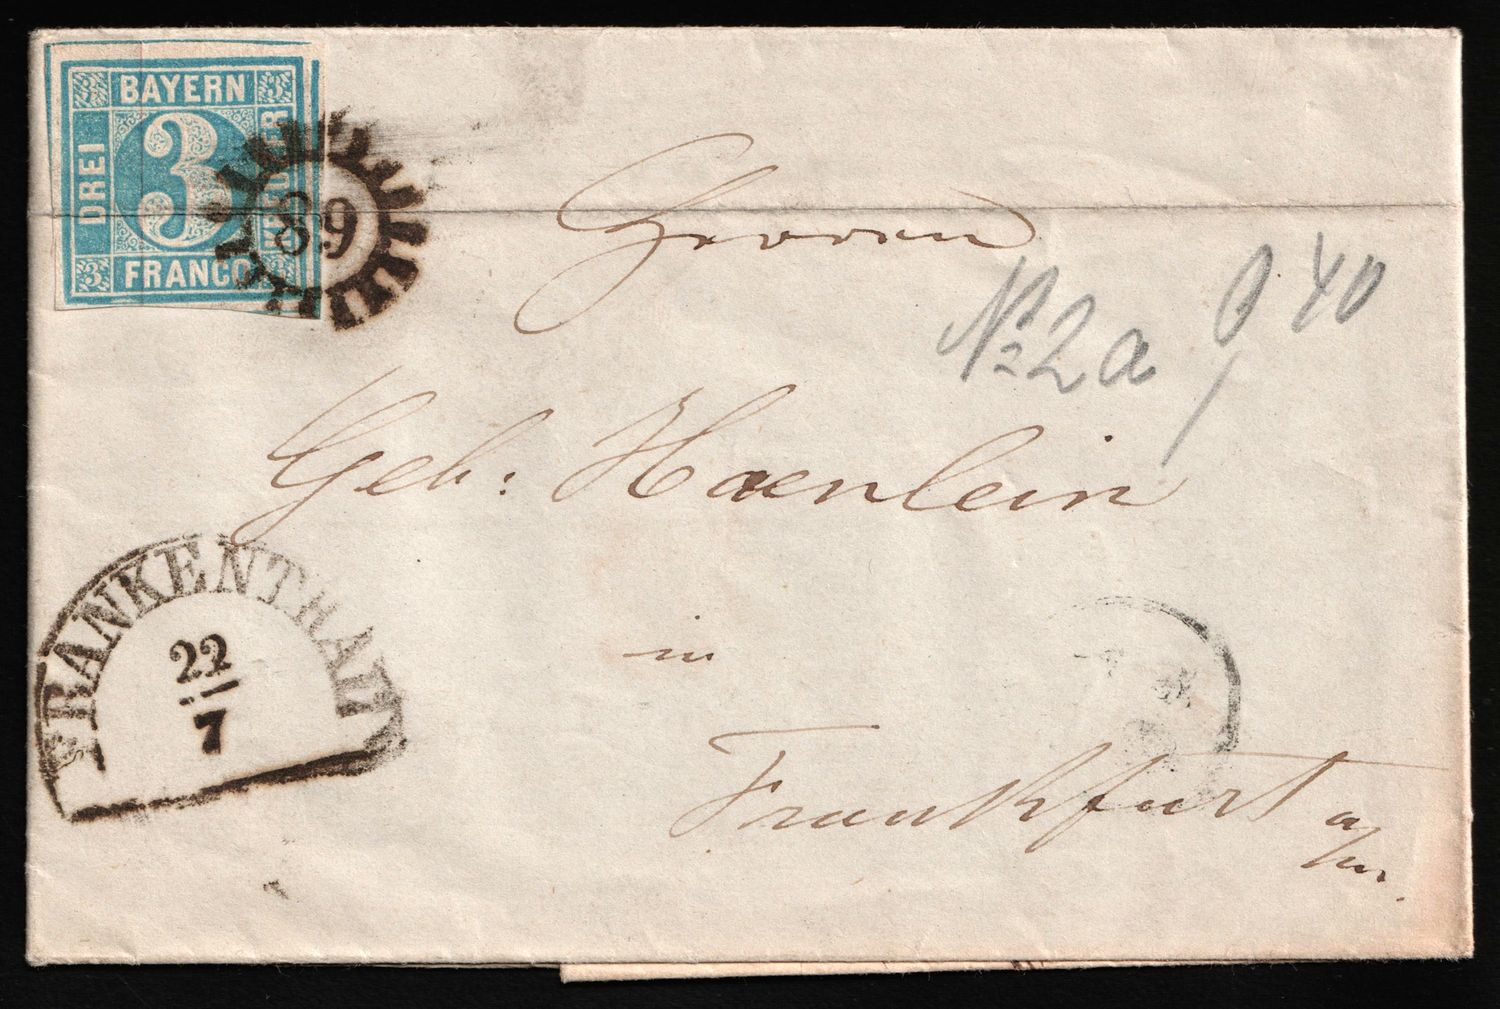 BAYERN
DREI
3
KREUZER
FRANCO
89
Herren
Nº 2a 40
Geb: Haenlein
FRANKENTHAL
22
7
in
Frankfurt a/m.